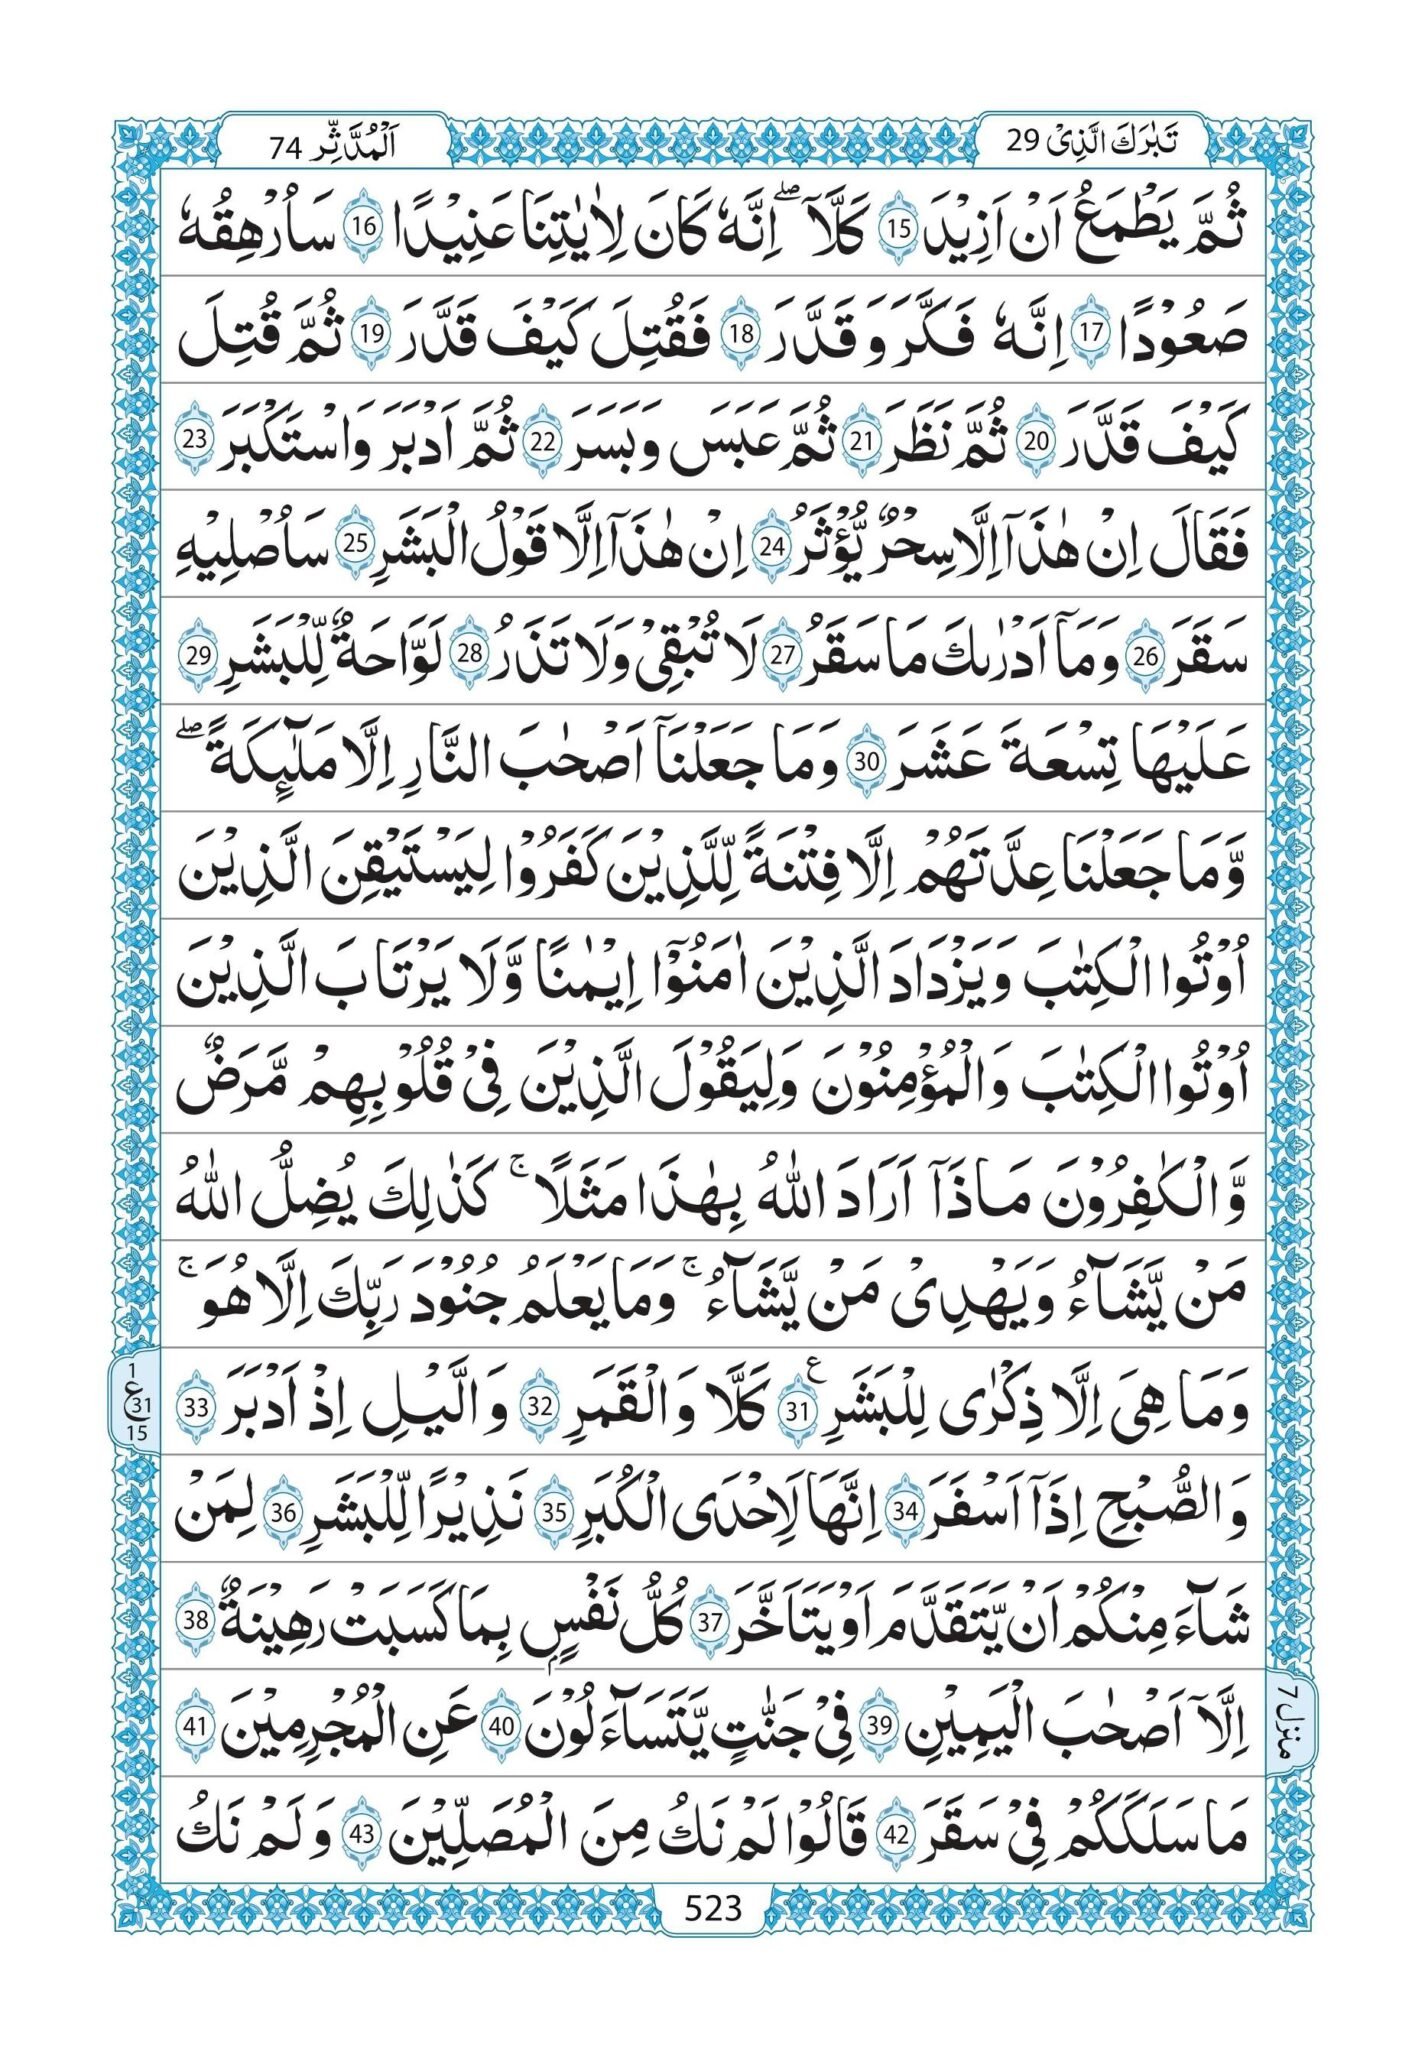 تَبٰرَكَ الَّذِیْ 29
اَلْمُدَّثِّر 74
ثُمَّ یَطْمَعُ اَنْ اَزِیْدَ 15 كَلَّاؕ ۖ اِنَّهٗ كَانَ لِاٰیٰتِنَا عَنِیْدًا 16 سَاُرْهِقُهٗ
صَعُوْدًا 17 اِنَّهٗ فَكَّرَ وَ قَدَّرَ 18 فَقُتِلَ كَیْفَ قَدَّرَ 19 ثُمَّ قُتِلَ
كَیْفَ قَدَّرَ 20 ثُمَّ نَظَرَ 21 ثُمَّ عَبَسَ وَ بَسَرَ 22 ثُمَّ اَدْبَرَ وَ اسْتَكْبَرَ 23
فَقَالَ اِنْ هٰذَاۤ اِلَّا سِحْرٌ یُّؤْثَرُ 24 اِنْ هٰذَاۤ اِلَّا قَوْلُ الْبَشَرِ 25 سَاُصْلِیْهِ
سَقَرَ 26 وَ مَاۤ اَدْرٰىكَ مَا سَقَرُ 27 لَا تُبْقِیْ وَ لَا تَذَرُ 28 لَوَّاحَةٌ لِّلْبَشَرِ 29
عَلَیْهَا تِسْعَةَ عَشَرَ 30 وَ مَا جَعَلْنَاۤ اَصْحٰبَ النَّارِ اِلَّا مَلٰٓىِٕكَةً ۖ
وَّ مَا جَعَلْنَا عِدَّتَهُمْ اِلَّا فِتْنَةً لِّلَّذِیْنَ كَفَرُوْا لِیَسْتَیْقِنَ الَّذِیْنَ
اُوْتُوا الْكِتٰبَ وَ یَزْدَادَ الَّذِیْنَ اٰمَنُوْۤا اِیْمٰنًا وَّ لَا یَرْتَابَ الَّذِیْنَ
اُوْتُوا الْكِتٰبَ وَ الْمُؤْمِنُوْنَ وَ لِیَقُوْلَ الَّذِیْنَ فِیْ قُلُوْبِهِمْ مَّرَضٌ
وَّ الْكٰفِرُوْنَ مَا ذَاۤ اَرَادَ اللّٰهُ بِهٰذَا مَثَلًا ۚ كَذٰلِكَ یُضِلُّ اللّٰهُ
مَنْ یَّشَآءُ وَ یَهْدِیْ مَنْ یَّشَآءُ ۚ وَ مَا یَعْلَمُ جُنُوْدَ رَبِّكَ اِلَّا هُوَ ۚ
وَ مَا هِیَ اِلَّا ذِكْرٰی لِلْبَشَرِ ع 31 كَلَّا وَ الْقَمَرِ 32 وَ الَّیْلِ اِذْ اَدْبَرَ 33
1 ع 31 15
وَ الصُّبْحِ اِذَاۤ اَسْفَرَ 34 اِنَّهَا لَاِحْدَی الْكُبَرِ 35 نَذِیْرًا لِّلْبَشَرِ 36 لِمَنْ
شَآءَ مِنْكُمْ اَنْ یَّتَقَدَّمَ اَوْ یَتَاَخَّرَ 37 كُلُّ نَفْسٍۭ بِمَا كَسَبَتْ رَهِیْنَةٌ 38
اِلَّاۤ اَصْحٰبَ الْیَمِیْنِ 39 فِیْ جَنّٰتٍ یَّتَسَآءَلُوْنَ 40 عَنِ الْمُجْرِمِیْنَ 41
منزل 7
مَا سَلَكَكُمْ فِیْ سَقَرَ 42 قَالُوْا لَمْ نَكُ مِنَ الْمُصَلِّیْنَ 43 وَ لَمْ نَكُ
523